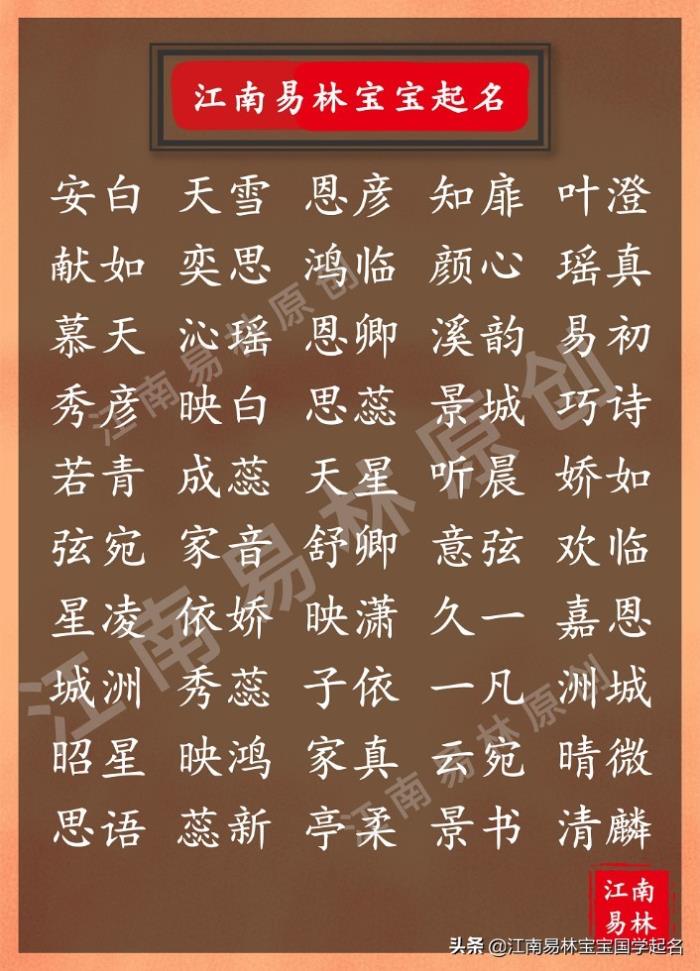 江南易林宝宝起名
安白 天雪 恩彦 知扉 叶澄
献如 奕思 鸿临 颜心 瑶真
慕天 沁瑶 恩卿 溪韵 易初
秀彦 映白 思蕊 景城 巧诗
若青 成蕊 天星 听晨 娇如
弦宛 家音 舒卿 意弦 欢临
星凌 依娇 映潇 久一 嘉恩
城洲 秀蕊 子依 一凡 洲城
昭星 映鸿 家真 云宛 晴微
思语 蕊新 亭柔 景书 清麟
江南易林原创
江南易林原创
江南易林原创
江南
易林
头条 @江南易林宝宝国学起名